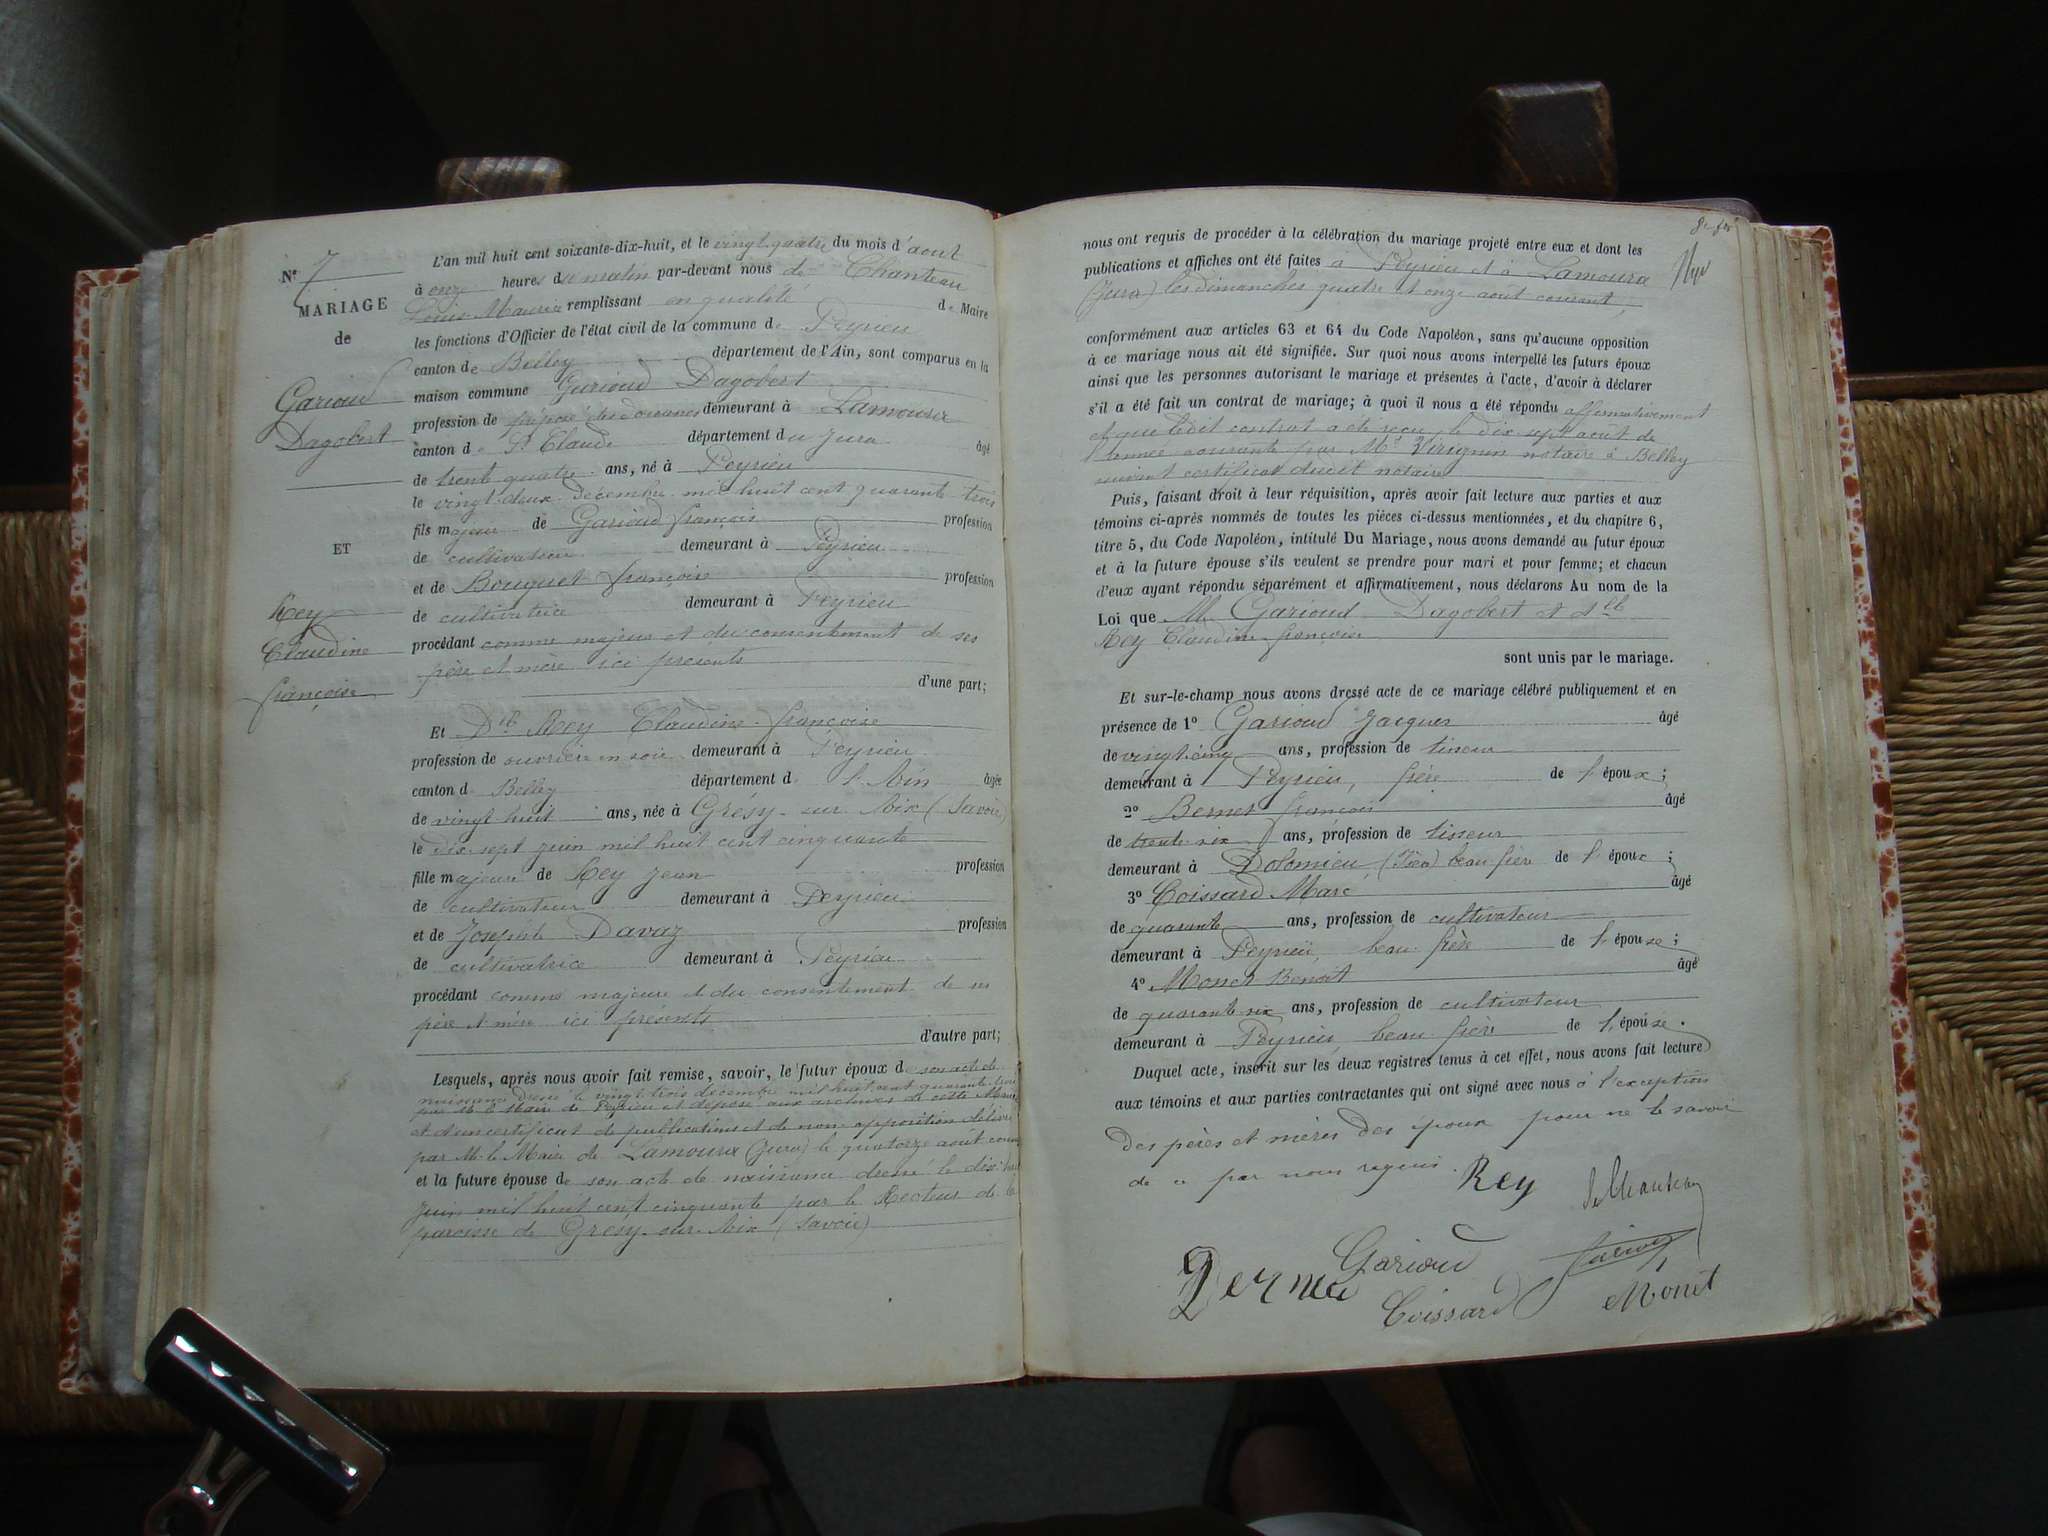 N° 7
MARIAGE
de
Garioud
Dagobert
ET
Rey
Claudine
françoise
L'an mil huit cent soixante-dix-huit, et le vingt quatre du mois d'aout
à onze heures du matin par-devant nous de Chanteau
Louis Maurice remplissant en qualité de Maire
les fonctions d'Officier de l'état civil de la commune de Peyrieu
canton de Belley département de l'Ain, sont comparus en la
maison commune Garioud Dagobert
profession de préposé des douanes demeurant à Lamoura
canton de St Claude département du Jura âgé
de trente quatre ans, né à Peyrieu
le vingt deux décembre mil huit cent quarante trois
fils majeur de Garioud françois profession
de cultivateur demeurant à Peyrieu
et de Bouquet françoise profession
de cultivatrice demeurant à Peyrieu
procédant comme majeur et du consentement de ses
père et mère ici présents
d'une part;
Et Dlle Rey Claudine françoise
profession de ouvrière en soie demeurant à Peyrieu
canton de Belley département de l'Ain âgée
de vingt huit ans, née à Grésy-sur-Aix (Savoie)
le dix sept juin mil huit cent cinquante
fille majeure de Rey Jean profession
de cultivateur demeurant à Peyrieu
et de Josephte Davaz profession
de cultivatrice demeurant à Peyrieu
procédant comme majeure et du consentement de ses
père et mère ici présents
d'autre part;
Lesquels, après nous avoir fait remise, savoir, le futur époux de son acte de
naissance dressé le vingt trois décembre mil huit cent quarante trois
par Mr le Maire de Peyrieu et déposé aux archives de cette Mairie
et d'un certificat de publications et de non opposition délivré
par Mr le Maire de Lamoura (Jura) le quatorze août courant
et la future épouse de son acte de naissance dressé le dix huit
juin mil huit cent cinquante par le Recteur de la
paroisse de Grésy-sur-Aix (Savoie)
nous ont requis de procéder à la célébration du mariage projeté entre eux et dont les
publications et affiches ont été faites à Peyrieu et à Lamoura
(Jura) les dimanches quatre et onze août courant,
conformément aux articles 63 et 64 du Code Napoléon, sans qu'aucune opposition
à ce mariage nous ait été signifiée. Sur quoi nous avons interpellé les futurs époux
ainsi que les personnes autorisant le mariage et présentes à l'acte, d'avoir à déclarer
s'il a été fait un contrat de mariage; à quoi il nous a été répondu affirmativement
et que ledit contrat a été reçu le dix sept août de
l'année courante par Me notaire à Belley
suivant certificat dudit notaire
Puis, faisant droit à leur réquisition, après avoir fait lecture aux parties et aux
témoins ci-après nommés de toutes les pièces ci-dessus mentionnées, et du chapitre 6,
titre 5, du Code Napoléon, intitulé Du Mariage, nous avons demandé au futur époux
et à la future épouse s'ils veulent se prendre pour mari et pour femme; et chacun
d'eux ayant répondu séparément et affirmativement, nous déclarons Au nom de la
Loi que Mr Garioud Dagobert et Dlle
Rey Claudine françoise
sont unis par le mariage.
Et sur-le-champ nous avons dressé acte de ce mariage célébré publiquement et en
présence de 1° Garioud Jacques âgé
de vingt cinq ans, profession de tisseur
demeurant à Peyrieu, frère de l'époux;
2° Bernet françois âgé
de trente six ans, profession de tisseur
demeurant à Dolomieu, (Isère) beau frère de l'époux;
3° Coissard Marc âgé
de quarante ans, profession de cultivateur
demeurant à Peyrieu, beau frère de l'épouse;
4° Monet Benoît âgé
de quarante six ans, profession de cultivateur
demeurant à Peyrieu, beau frère de l'épouse.
Duquel acte, inscrit sur les deux registres tenus à cet effet, nous avons fait lecture
aux témoins et aux parties contractantes qui ont signé avec nous à l'exception
des pères et mères des époux pour ne le savoir
de ce par nous requis.
Rey
Garioud
Coissard
Monet